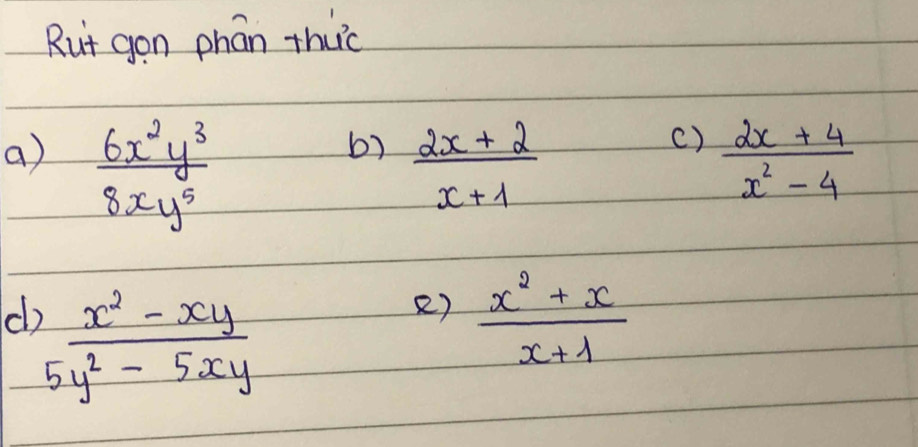 Rút gọn phân thức
a) \frac{6x^2y^3}{8xy^5} b) \frac{2x + 2}{x + 1} c) \frac{2x + 4}{x^2 - 4}
d) \frac{x^2 - xy}{5y^2 - 5xy} e) \frac{x^2 + x}{x + 1}